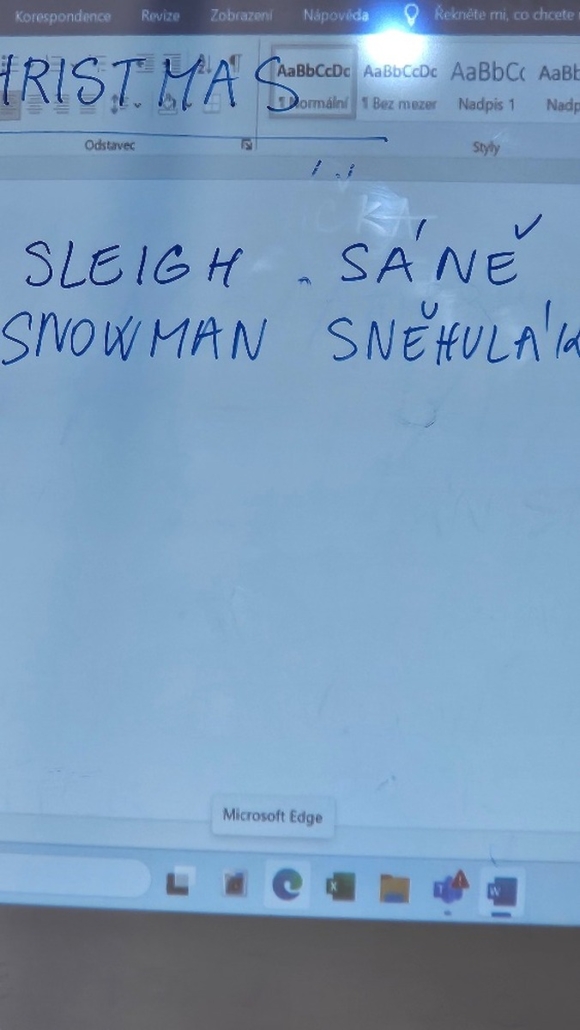 Korespondence Revize Zobrazení Nápověda Řekněte mi, co chcete
HRISTMAS
AaBbCcDc AaBbCcDc AaBbC( AaBb
¶ Normální ¶ Bez mezer Nadpis 1 Nadp
Odstavec Styly
SLEIGH SÁNĚ
SNOWMAN SNĚHULÁK
Microsoft Edge